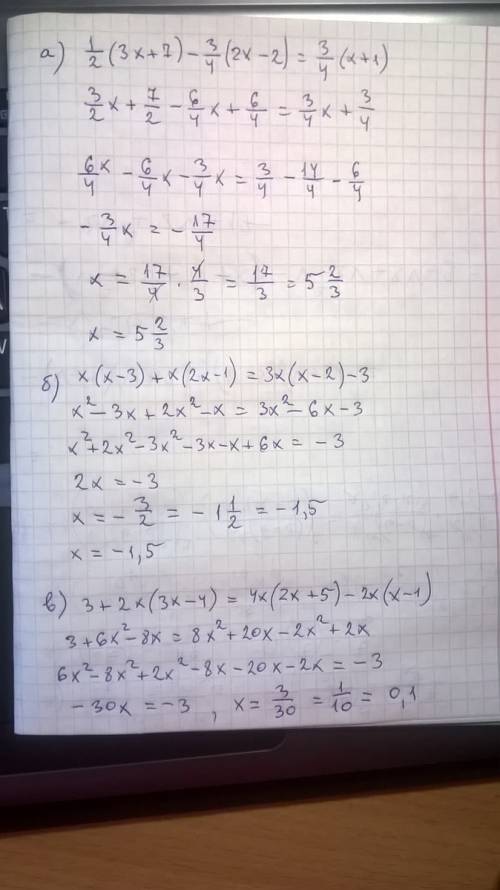 а) 1/2 (3x+7) - 3/4 (2x-2) = 3/4 (x+1)
3/2 x + 7/2 - 6/4 x + 6/4 = 3/4 x + 3/4
6/4 x - 6/4 x - 3/4 x = 3/4 - 14/4 - 6/4
- 3/4 x = - 17/4
x = 17/4 · 4/3 = 17/3 = 5 2/3
x = 5 2/3
б) x(x-3) + x(2x-1) = 3x(x-2) - 3
x² - 3x + 2x² - x = 3x² - 6x - 3
x² + 2x² - 3x² - 3x - x + 6x = - 3
2x = -3
x = - 3/2 = - 1 1/2 = -1,5
x = -1,5
в) 3 + 2x(3x-4) = 4x(2x+5) - 2x(x-1)
3 + 6x² - 8x = 8x² + 20x - 2x² + 2x
6x² - 8x² + 2x² - 8x - 20x - 2x = -3
-30x = -3 , x = 3/30 = 1/10 = 0,1